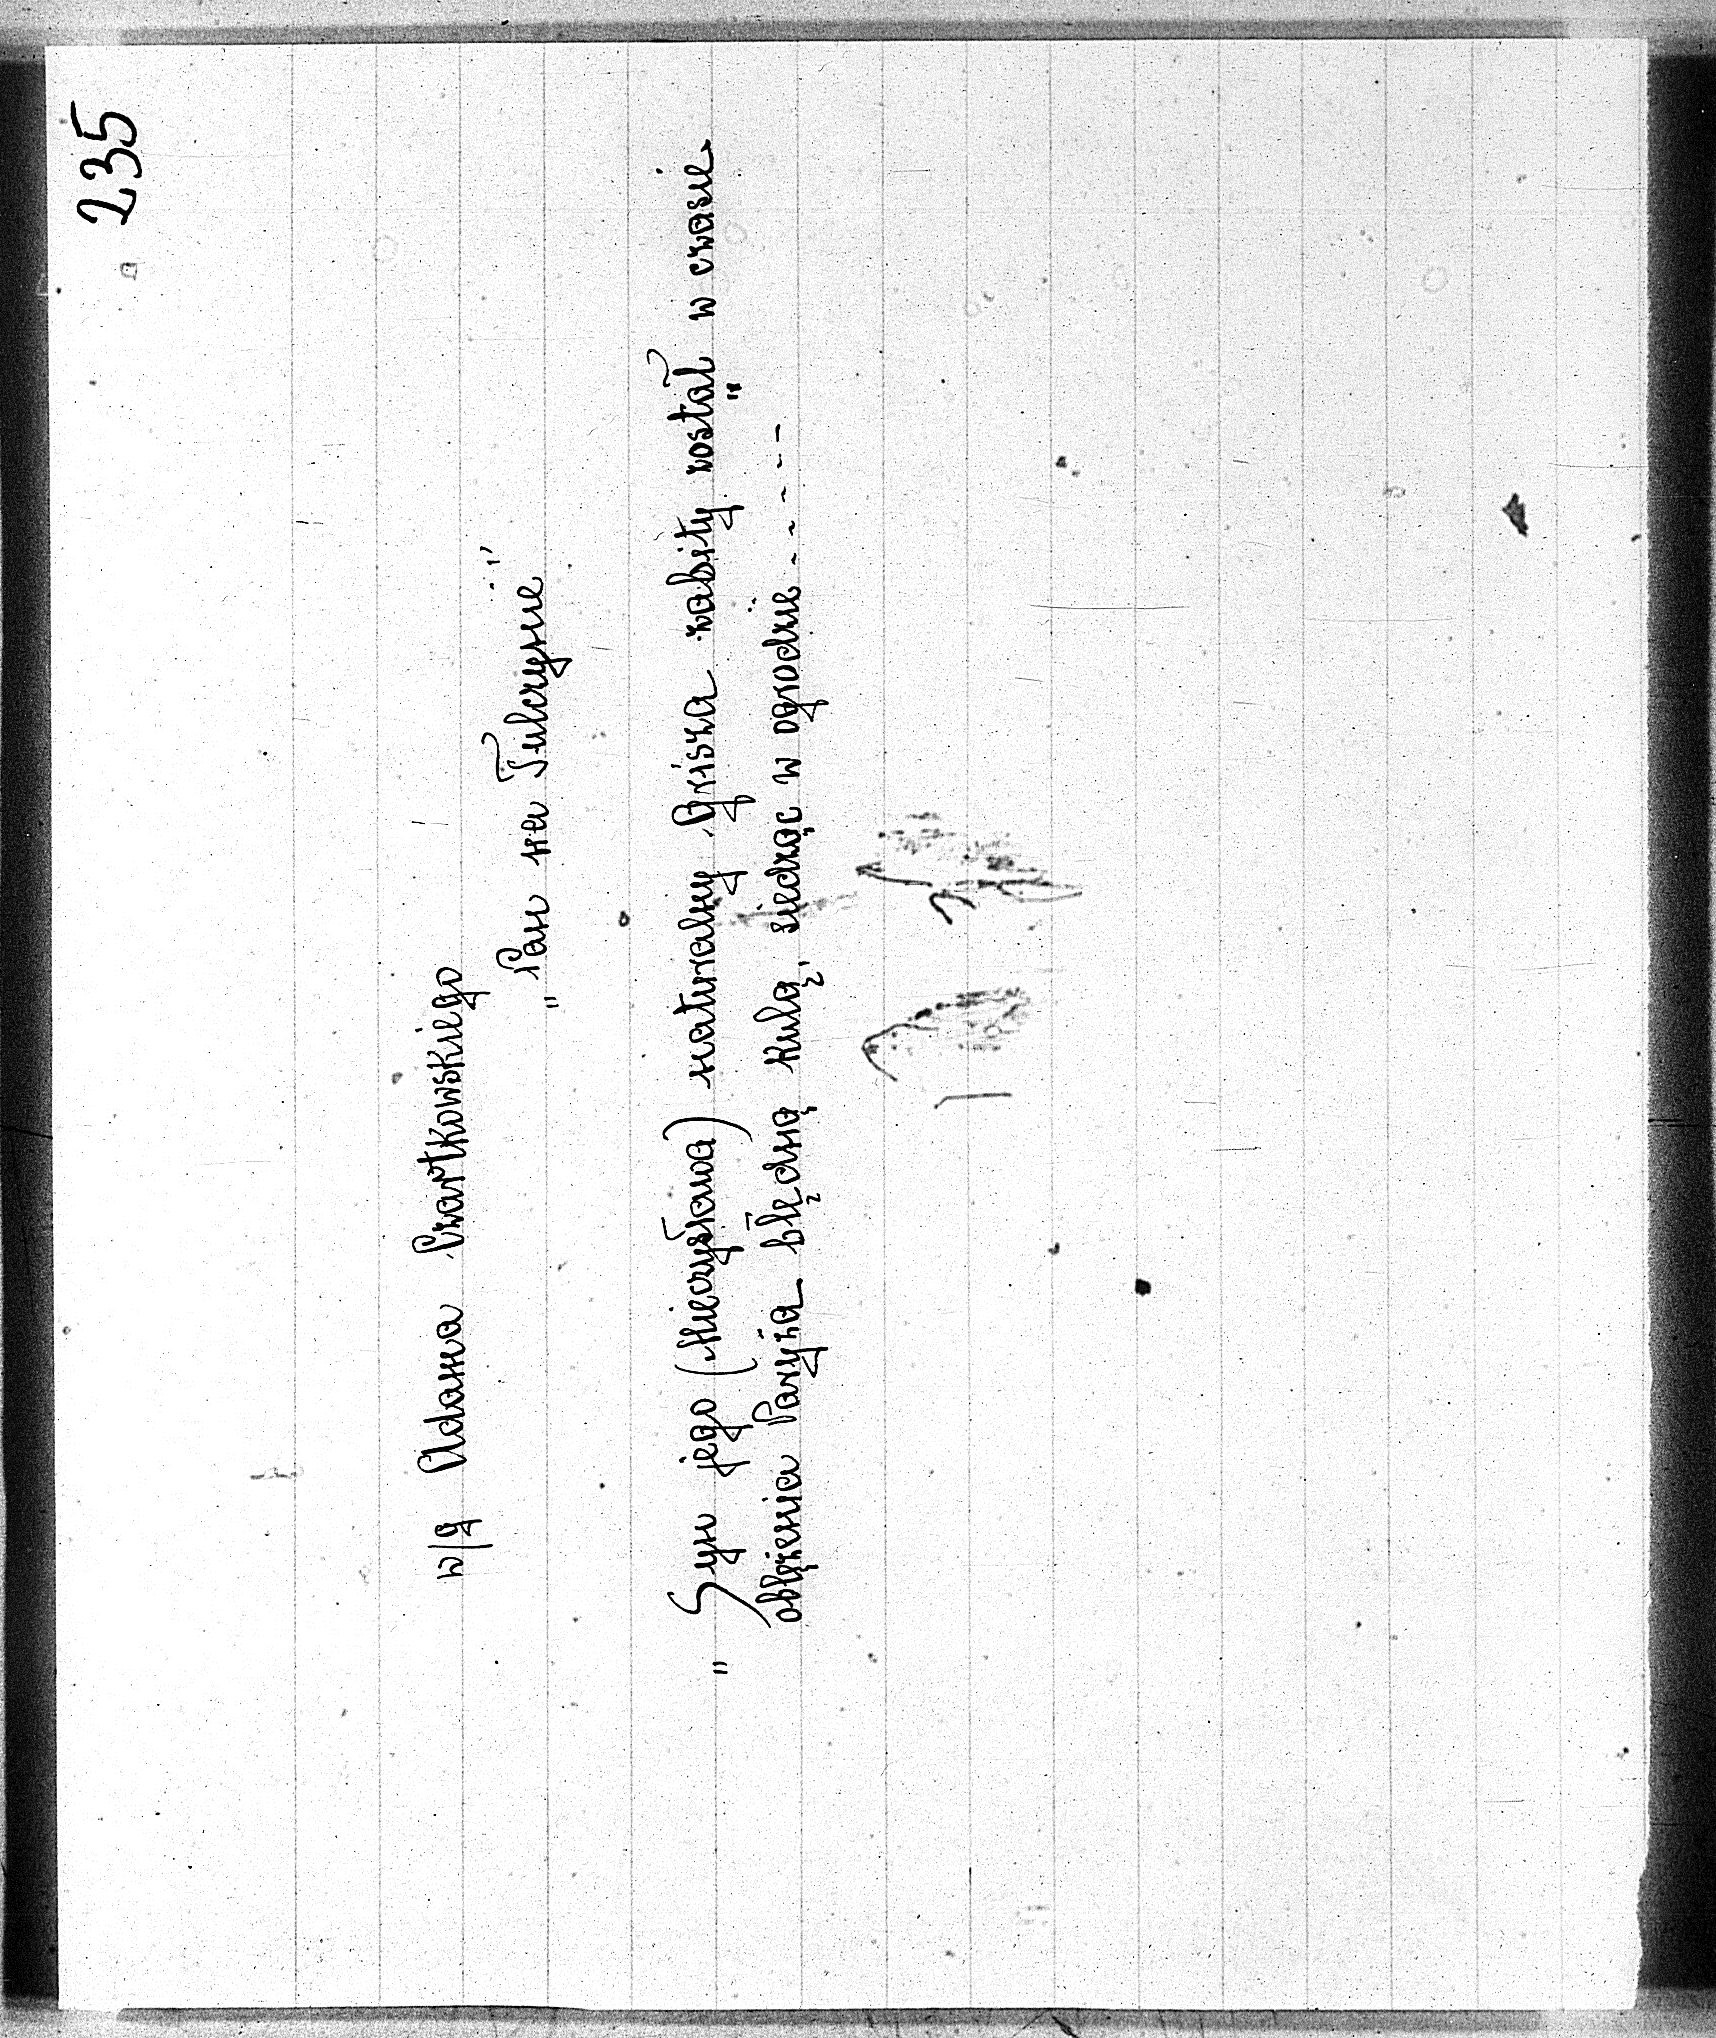 235
w/g Adama Czartkowskiego
"Pan na Tulczynie"
"Syn jego (Mieczysława) naturalny Grisza zabity został w czasie
oblężenia Paryża błędną kulą, siedząc w ogrodzie - - - - -"